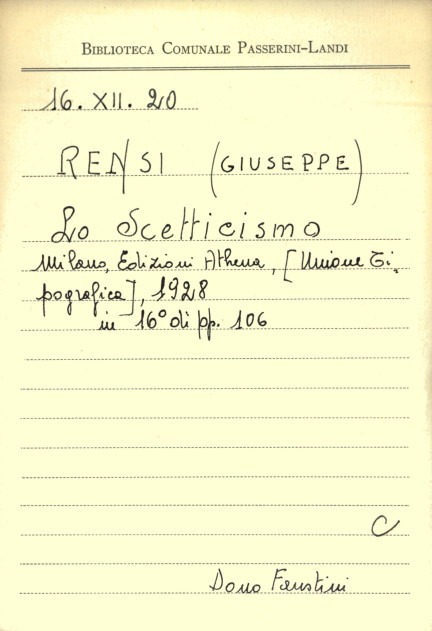 BIBLIOTECA COMUNALE PASSERINI-LANDI
16. XII. 20
RENSI (GIUSEPPE)
Lo Scetticismo
Milano, Edizioni Athena, [Unione Ti.
pografica], 1928
in 16° di pp. 106
C
Dono Faustini